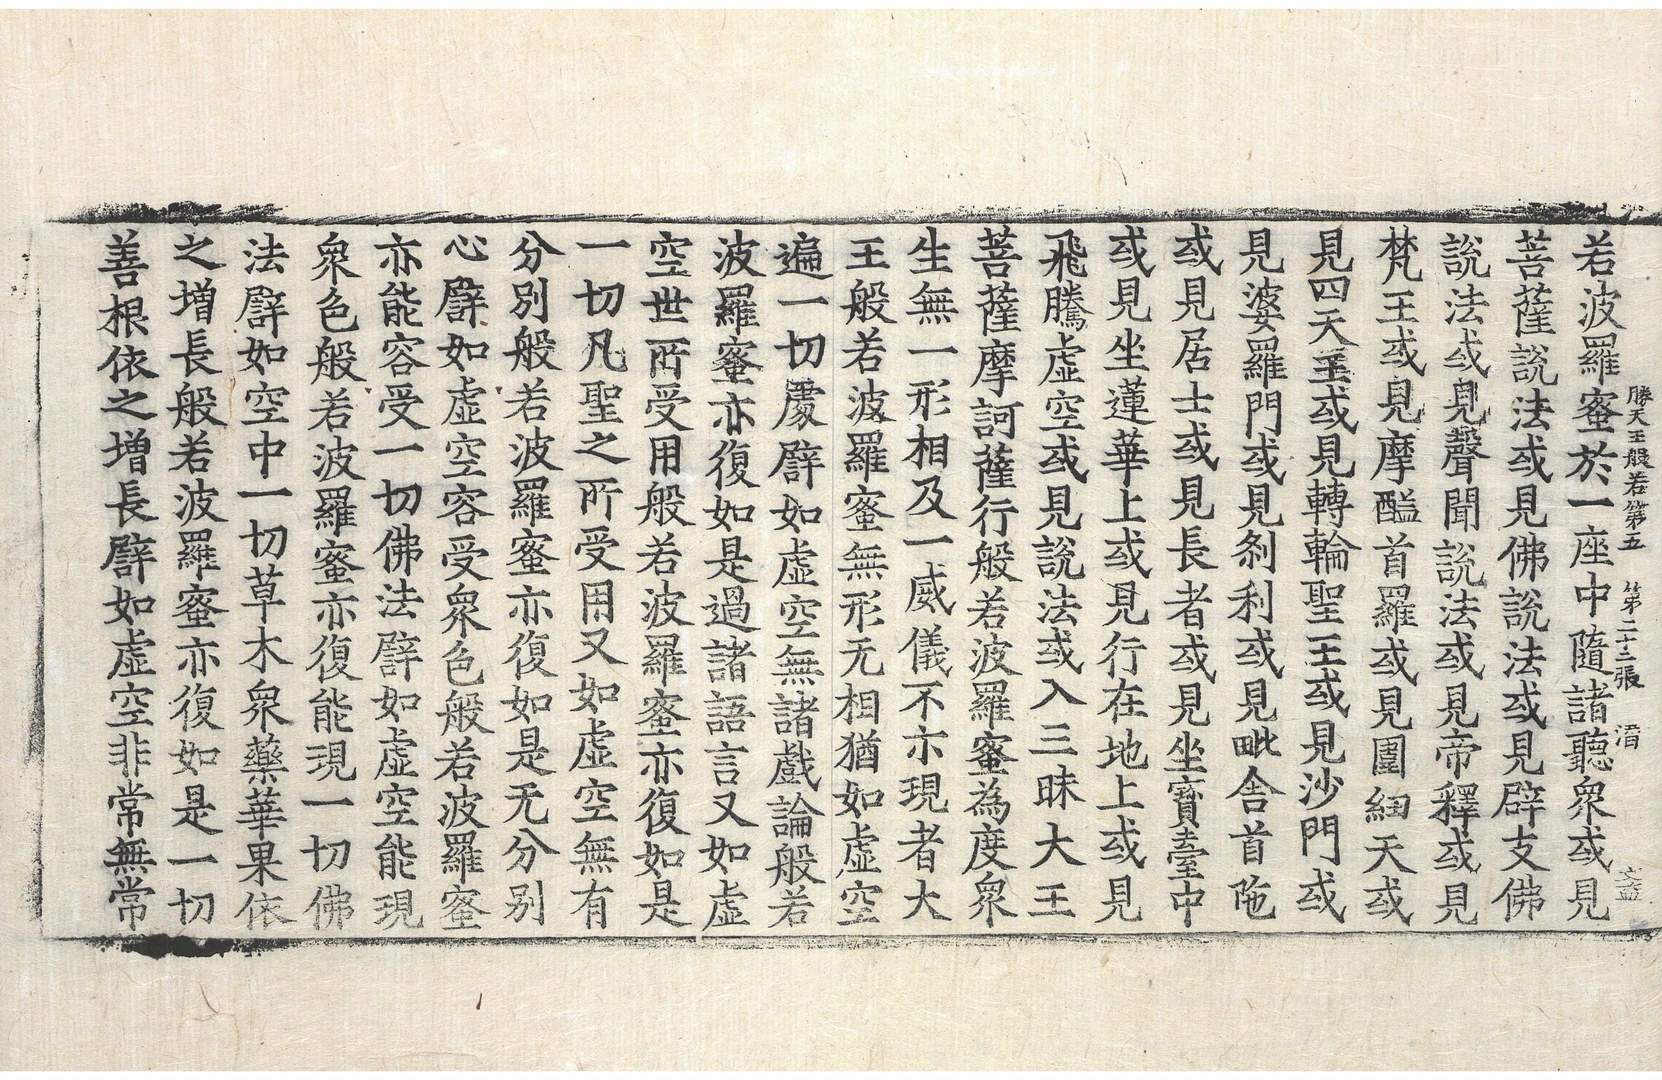 勝天王般若第五　第二十二張　淯　文益
若波羅蜜於一座中隨諸聽衆或見
菩薩說法或見佛說法或見辟支佛
說法或見聲聞說法或見帝釋或見
梵王或見摩醯首羅或見圍紐天或
見四天王或見轉輪聖王或見沙門或
見婆羅門或見刹利或見毗舍首陁
或見居士或見長者或見坐寳臺中
或見坐蓮華上或見行在地上或見
飛騰虛空或見說法或入三昧大王
菩薩摩訶薩行般若波羅蜜為度衆
生無一形相及一威儀不示現者大
王般若波羅蜜無形无相猶如虛空
遍一切處譬如虛空無諸戲論般若
波羅蜜亦復如是過諸語言又如虛
空世所受用般若波羅蜜亦復如是
一切凡聖之所受用又如虛空無有
分別般若波羅蜜亦復如是无分別
心譬如虛空容受衆色般若波羅蜜
亦能容受一切佛法譬如虛空能現
衆色般若波羅蜜亦復能現一切佛
法譬如空中一切草木衆藥華果依
之增長般若波羅蜜亦復如是一切
善根依之增長譬如虛空非常無常